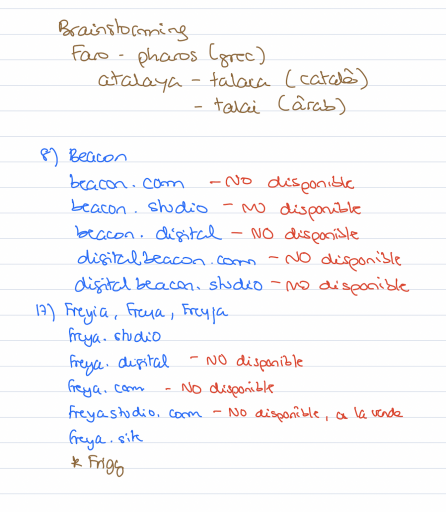 Brainstorming
Faro - pharos (grec)
atalaya - talaia (català)
- talai (àrab)
8) Beacon
beacon.com - NO disponible
beacon.studio - NO disponible
beacon.digital - NO disponible
digitalbeacon.com - NO disponible
digitalbeacon.studio - NO disponible
17) Freyia, Freya, Freyja
freya.studio
freya.digital - NO disponible
freya.com - NO disponible
freyastudio.com - NO disponible, a la venda
freya.site
* Frigg